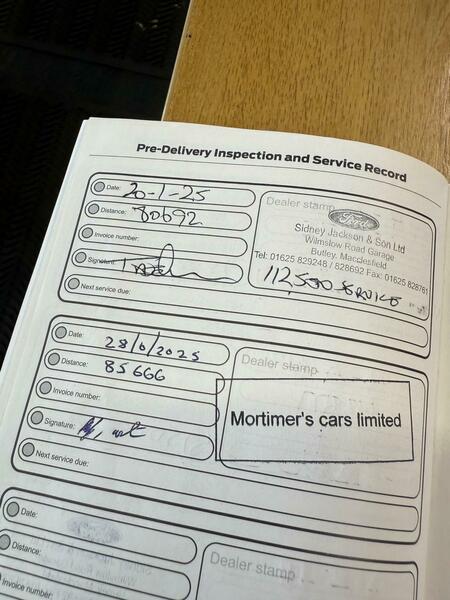 Pre-Delivery Inspection and Service Record
Date: 20-1-25
Distance: 80692
Invoice number:
Signature:
Next service due:
Dealer stamp
Ford
Sidney Jackson & Son Ltd
Wilmslow Road Garage
Butley. Macclesfield
Tel: 01625 829248 / 828692 Fax: 01625 828761
112,500 SERVICE
Date: 28/6/2025
Distance: 85666
Invoice number:
Signature:
Next service due:
Dealer stamp
Mortimer's cars limited
Date:
Distance:
Invoice number:
Dealer stamp